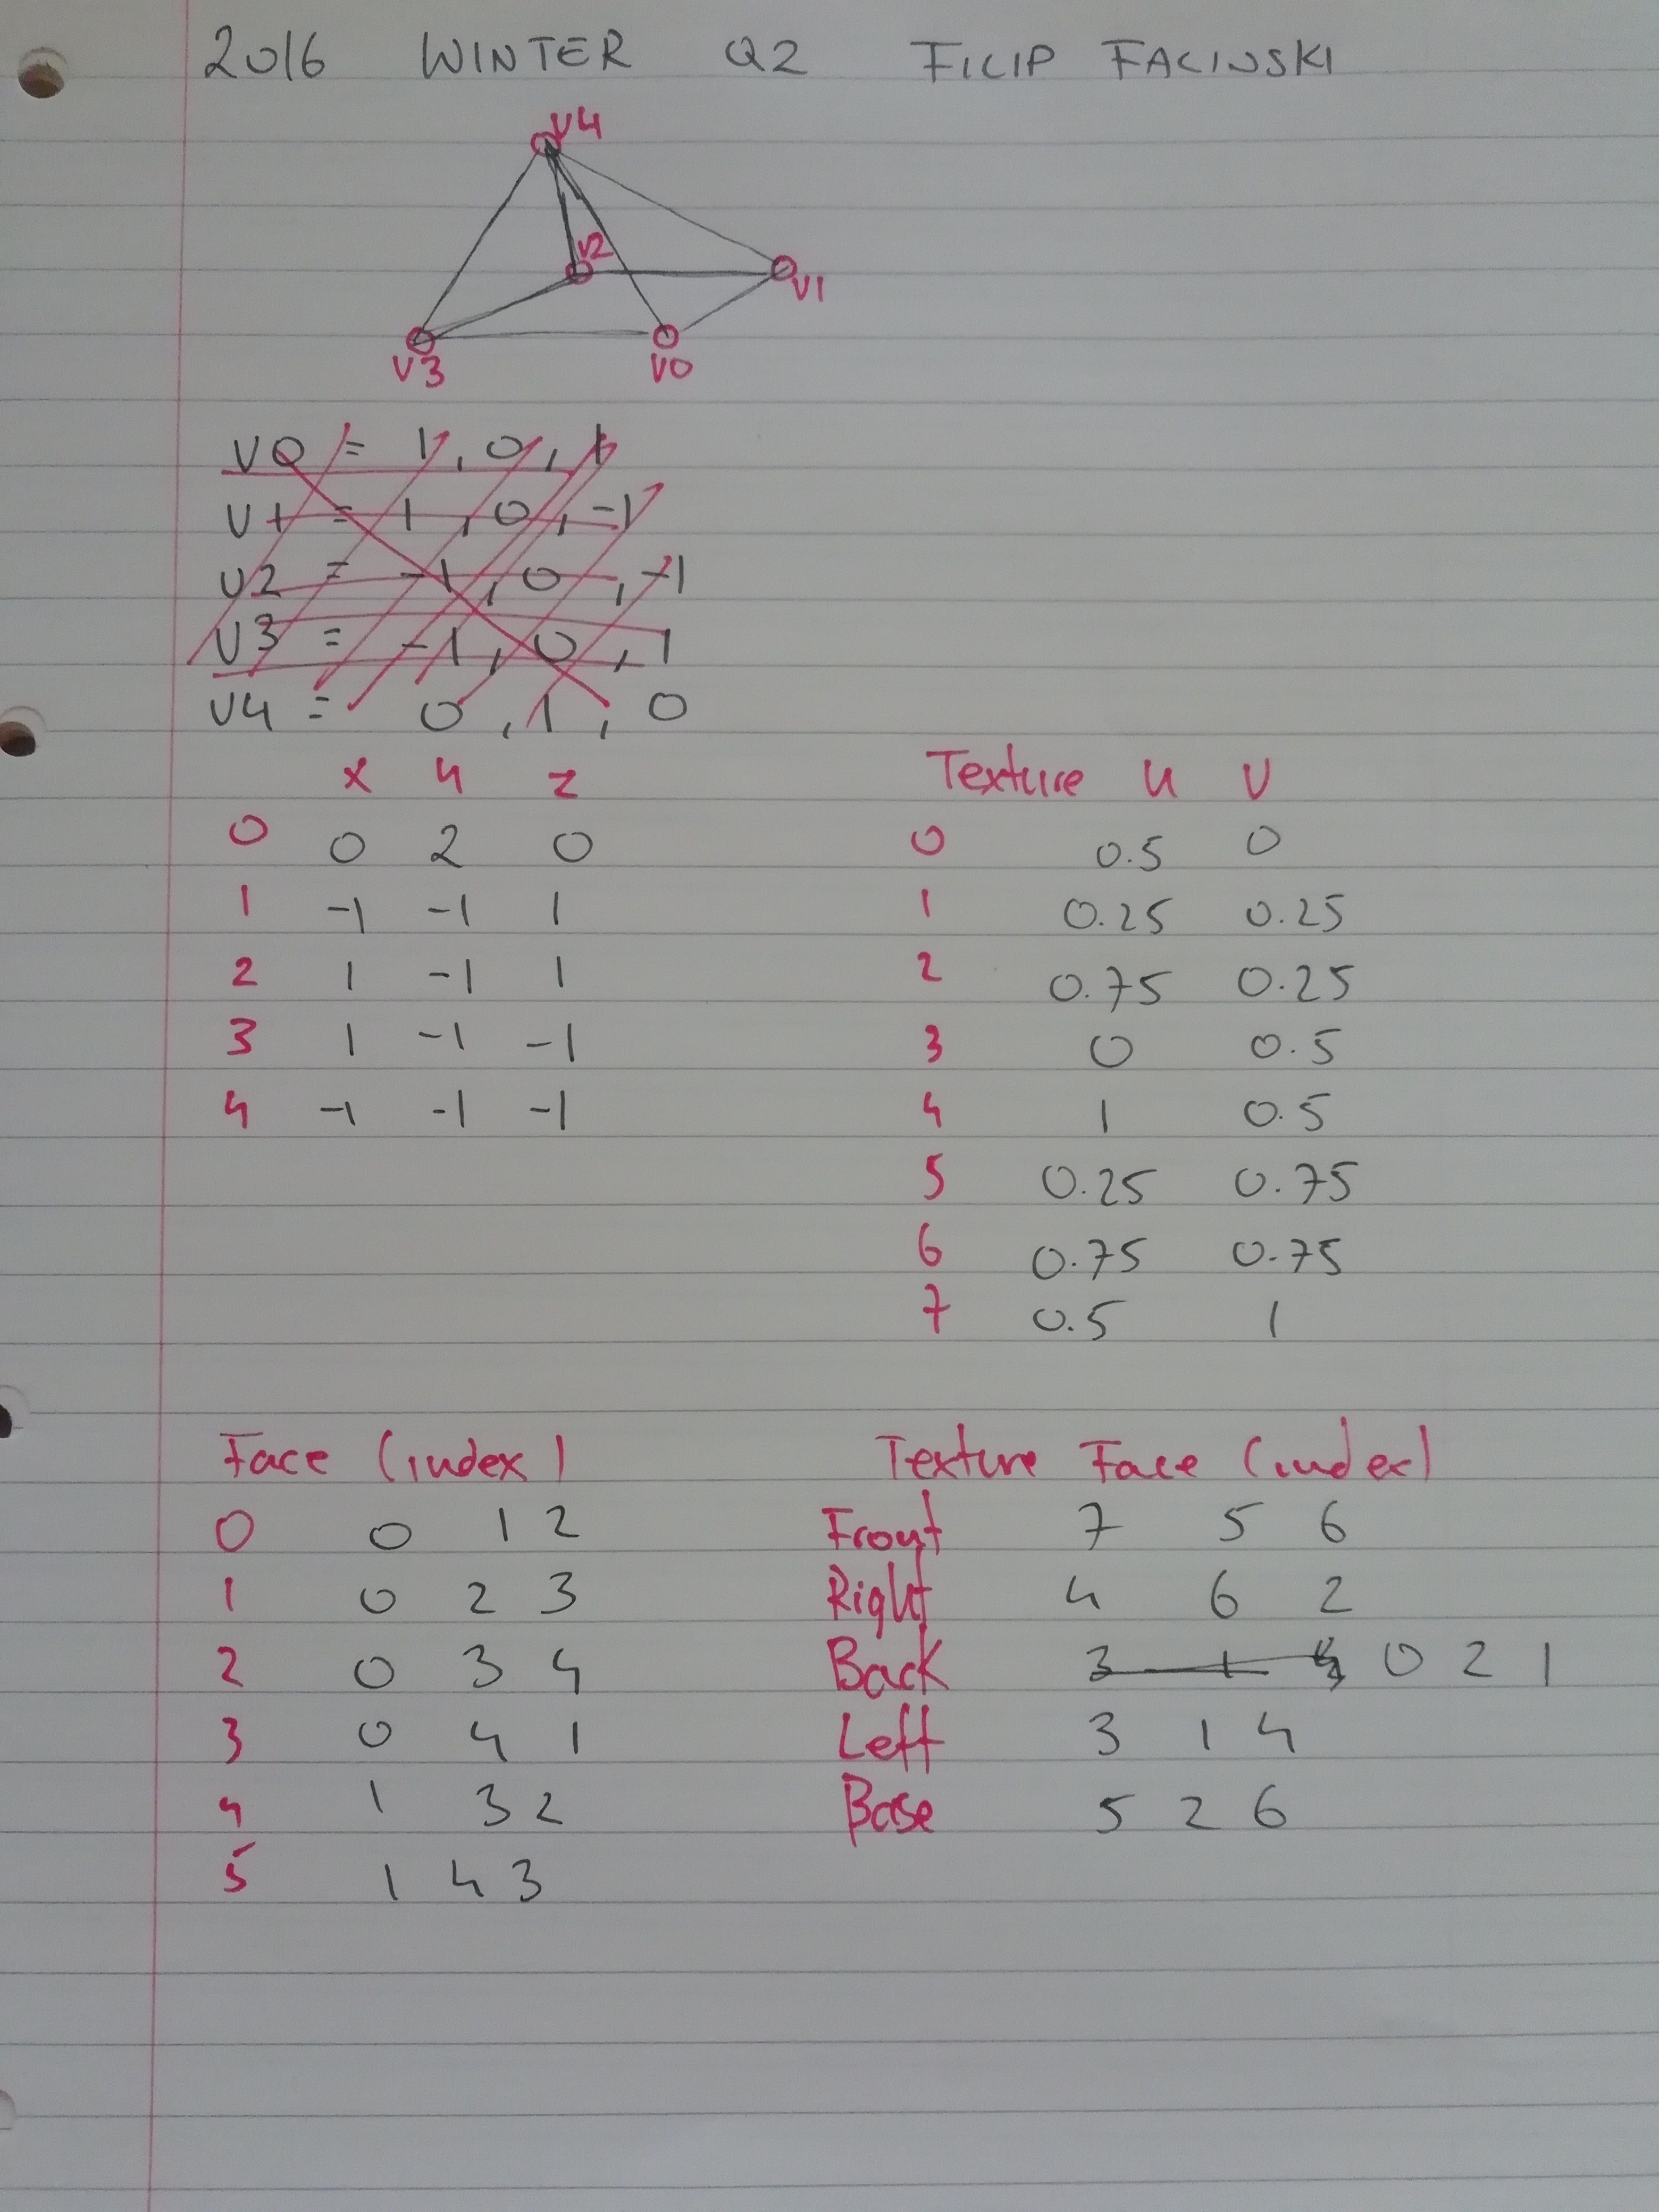 2016 WINTER Q2 FILIP FACINSKI
V4
V2
V1
V3 V0
V0 = 1, 0, 1
V1 = 1, 0, -1
V2 = -1, 0, -1
V3 = -1, 0, 1
V4 = 0, 1, 0
x y z
0 0 2 0
1 -1 -1 1
2 1 -1 1
3 1 -1 -1
4 -1 -1 -1
Texture u v
0 0.5 0
1 0.25 0.25
2 0.75 0.25
3 0 0.5
4 1 0.5
5 0.25 0.75
6 0.75 0.75
7 0.5 1
Face (index)
0 0 1 2
1 0 2 3
2 0 3 4
3 0 4 1
4 1 3 2
5 1 4 3
Texture Face (index)
Front 7 5 6
Right 4 6 2
Back 3 1 0 2 1
Left 3 1 4
Base 5 2 6